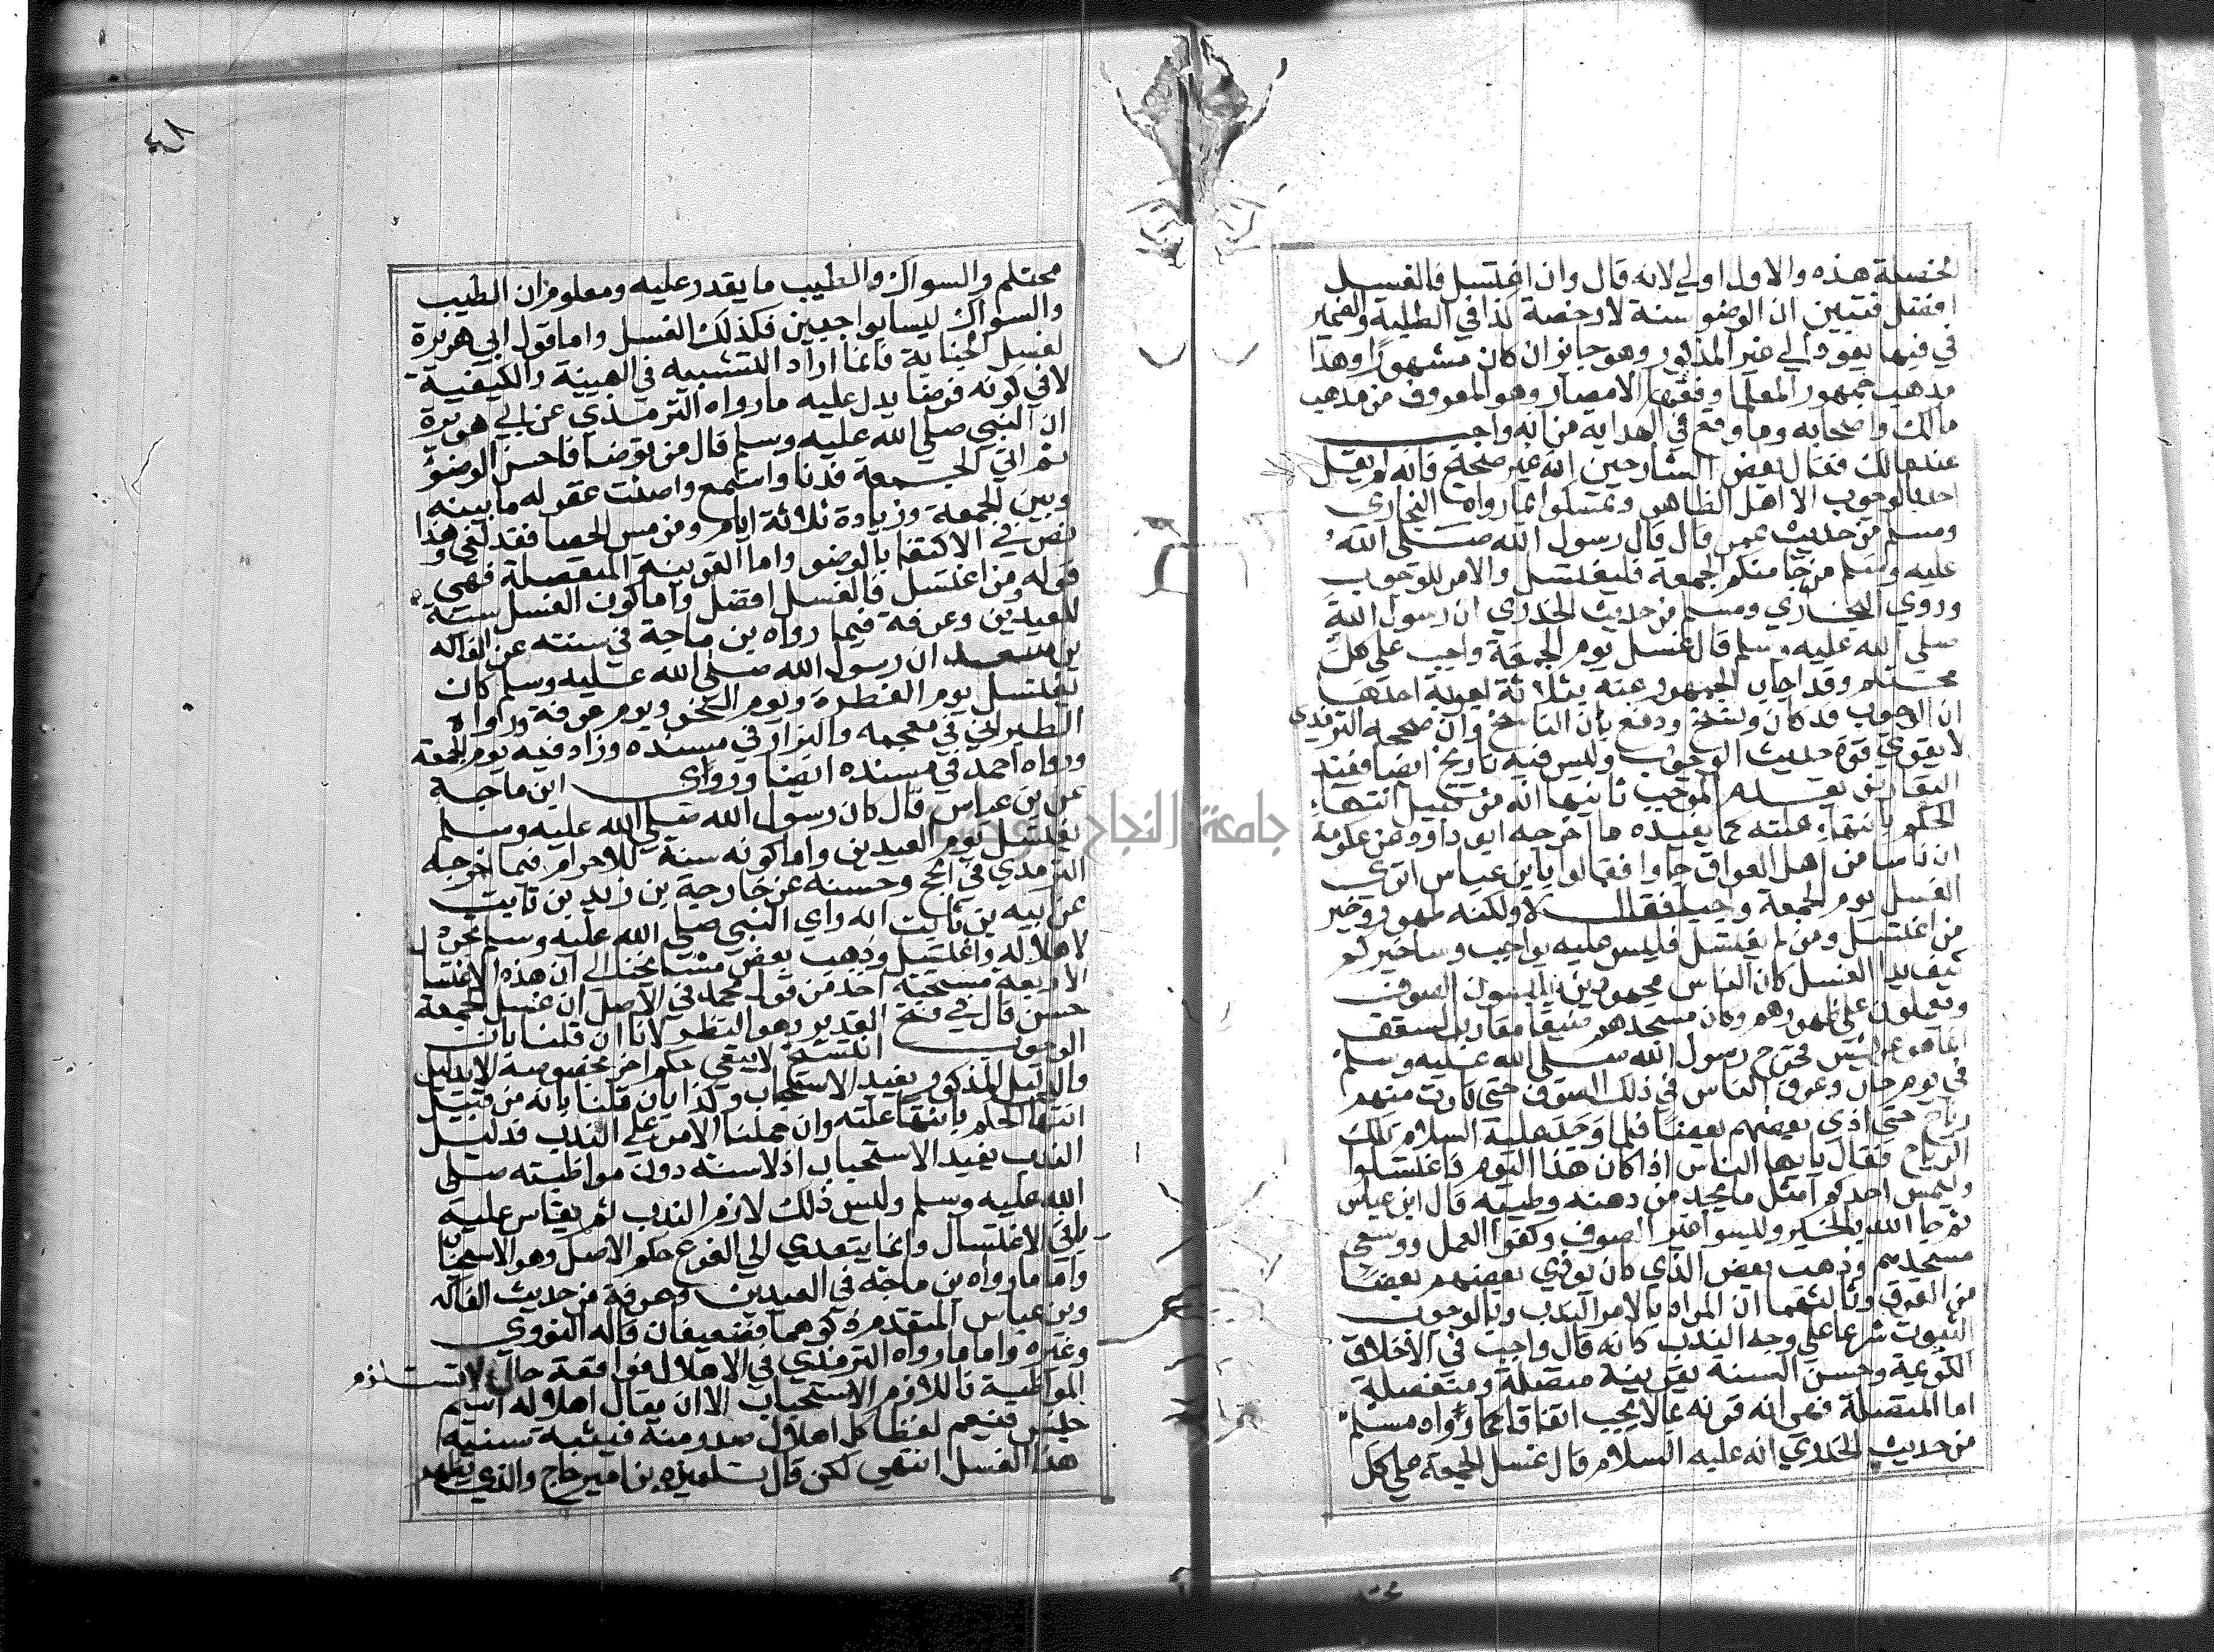 الخصلة هذه والاول اولي لانه قال وان اغتسل فالغسل
افضل فتبين ان الوضو سنة لا رخصة كذا في الطلبة والضمير
في فبها يعود الي غير المذكور وهو جايز ان كان مشهورا وهذا
مذهب جمهور العلما وفقها الامصار وهو المعروف من مذهب
مالك واصحابه وما وقع في الهداية من انه واجب
عند مالك فقال بعض الشارحين انه غير صحيح فانه لم يقل
احد بالوجوب الا اهل الظاهر وتمسكوا بما رواه البخاري
ومسلم من حديث عمر قال قال رسول الله صلى الله
عليه وسلم من جا منكم الجمعة فليغتسل والامر للوجوب
وروي البخاري ومسلم من حديث الخدري ان رسول الله
صلى الله عليه وسلم قال غسل يوم الجمعة واجب علي كل
محتلم وقد اجاب الجمهور عنه بثلاثة اجوبة احدها
ان الوجوب قد كان ونسخ ودفع بان الناسخ وان صححه الترمذي
لا يقوي قوة حديث الوجوب وليس فيه تاريخ ايضا فعند
التعارض يقدم الموجب ثانيها انه من قبيل انتهاء
الحكم بانتهاء علته كما يفيده ما اخرجه ابو داوود عن عكرمة
ان ناسا من اهل العراق جاوا فقالوا يا ابن عباس اتري
الغسل يوم الجمعة واجبا فقال لا ولكنه طهور وخير
من اغتسل ومن لم يغتسل فليس عليه بواجب وساخبركم
كيف بدا الغسل كان الناس مجهودين يلبسون الصوف
ويعملون على ظهورهم وكان مسجدهم ضيقا مقارب السقف
انما هو عريش فخرج رسول الله صلى الله عليه وسلم
في يوم حار وعرق الناس في ذلك الصوف حتى ثارت منهم
رياح حتى اذي بعضهم بعضا فلما وجد عليه السلام تلك
الرياح فقال يا ايها الناس اذا كان هذا اليوم فاغتسلوا
وليمس احدكم امثل ما يجد من دهنه وطيبه قال ابن عباس
ثم جا الله بالخير ولبسوا غير الصوف وكفوا العمل ووسع
مسجدهم وذهب بعض الذي كان يوذي بعضهم بعضا
من العرق وثالثهما ان المراد بالامر الندب وبالوجوب
الثبوت شرعا علي وجه الندب كانه قال واجب في الاخلاق
الكريمة وحسن السنة بقرينة متصلة ومنفصلة
اما المتصلة فهي انه قرنه بما لا يجب اتفاقا كما رواه مسلم
من حديث الخدري انه عليه السلام قال غسل الجمعة علي كل
محتلم والسواك والطيب ما يقدر عليه ومعلوم ان الطيب
والسواك ليسا بواجبين فكذلك الغسل واما قول ابي هريرة
لغسل الجنابة فانما اراد التشبيه في الهيئة والكيفية
لا في كونه فرضا يدل عليه ما رواه الترمذي عن ابي هريرة
ان النبي صلي الله عليه وسلم قال من توضا فاحسن الوضوء
ثم اتي الجمعة فدنا واستمع وانصت غفر له ما بينه
وبين الجمعة وزيادة ثلاثة ايام ومن مس الحصا فقد لغي وهذا
نص في الاكتفا بالوضو واما القرينة المنفصلة فهي
قوله ومن اغتسل فالغسل افضل واما كون الغسل سنة
للعيدين وعرفة فيما رواه بن ماجة في سننه عن الفاكه
بن سعد ان رسول الله صلى الله عليه وسلم كان
يغتسل يوم الفطر ويوم النحر ويوم عرفة ورواه
الطبراني في معجمه والبزار في مسنده وزاد فيه يوم الجمعة
ورواه احمد في مسنده ايضا وروي ابن ماجة
عن بن عباس قال كان رسول الله صلي الله عليه وسلم
يغتسل يوم العيدين واما كونه سنة للاحرام فيما اخرجه
الترمذي في الحج وحسنه عن خارجة بن زيد بن ثابت
عن ابيه بن ثابت انه راي النبي صلي الله عليه وسلم تجرد
لاهلاله واغتسل وذهب بعض مشايخنا الي ان هذه الاغتسا
الاربعة مستحبة اخذ من قول محمد في الاصل ان غسل الجمعة
حسن قال في فتح القدير وهو النظر لانا ان قلنا بان
الوجوب انتسخ لا يبقي حكم اخر بخصوصه الا بدليل
والدليل المذكور يفيد الاستحباب وكذا بان قلنا بانه من قبيل
انتها الحكم بانتها علته وان حملنا الامر علي الندب فدليل
الندب يفيد الاستحباب اذ لا سنة دون مواظبته صلي
الله عليه وسلم وليس ذلك لازم الندب ثم يقاس عليه
باقي الاغتسال وانما يتعدي الي الفرع حكم الاصل وهو الاستحباب
واما ما رواه بن ماجة في العيدين وعرفة من حديث الفاكه
وبن عباس المتقدم ذكرهما فضعيفان قاله النووي
وغيره واما ما رواه الترمذي في الاهلال فواقعة حال لا تستلزم
المواظبة فاللازم الاستحباب الا ان يقال اهلاله اسم
جنس فيعم لفظا كل اهلال صدر منه فيثبت سنية
هذا الغسل انتهي لكن قال تلميذه بن امير حاج والذي يظهر
٤٨
جامعة النجاح الوطنية